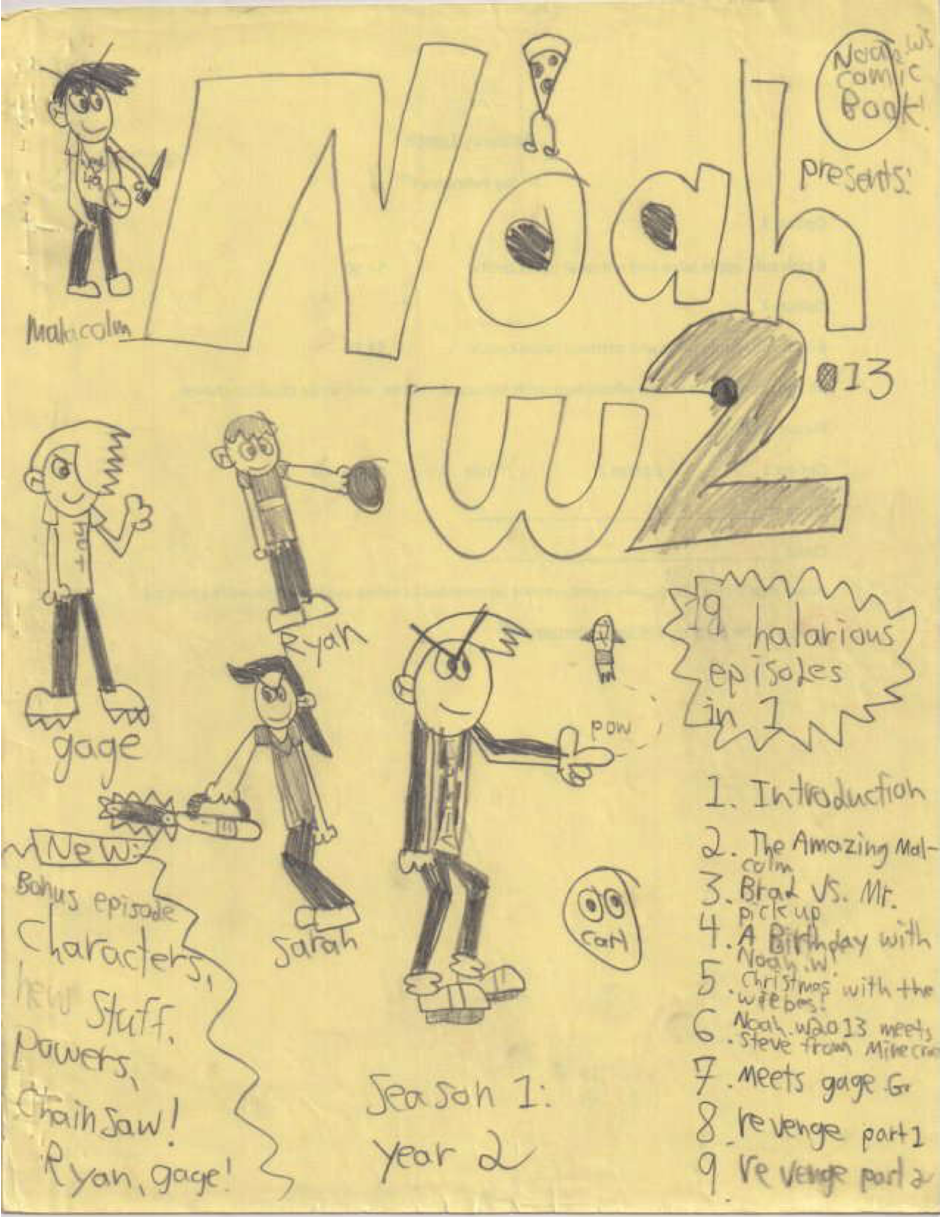 Noah.W's
Comic
Book!
presents:
Noah
W2013
Malacolm
gage
Ryan
Sarah
pow
Carl
19 halarious
episodes
in 1
1. Introduction
2. The Amazing Mal-
colm
3. Brad VS. Mr.
pickup
4. A Birthday with
Noah.W.
5. Christmas with the
wiebes!
6. Noah.w2013 meets
Steve from Minecraf
7. Meets gage G.
8 revenge part 1
9 revenge part 2
New:
Bonus episode
Characters,
new Stuff,
Powers,
Chainsaw!
Ryan, gage!
Season 1:
year 2